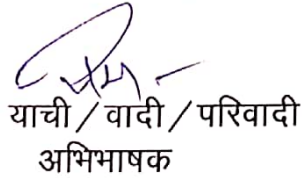 याची / वादी / परिवादी
अभिभाषक